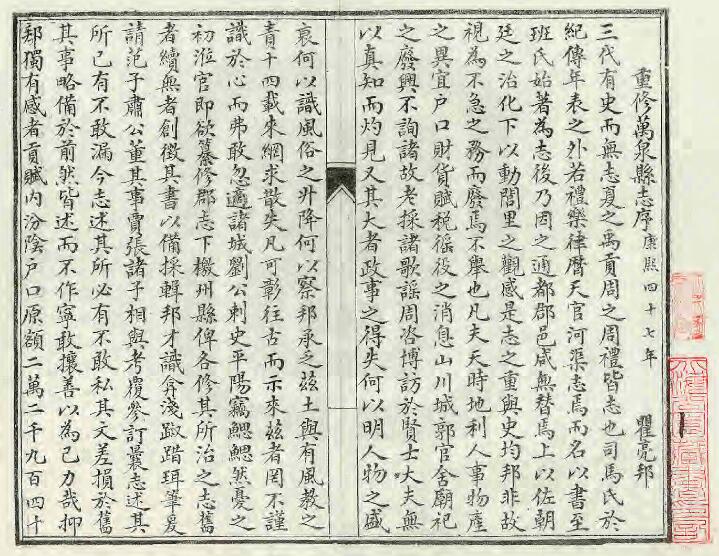 重修萬泉縣志序 康熙四十七年 瞿亮邦
三代有史而無志夏之禹貢周之周禮皆志也司馬氏於
紀傳年表之外若禮樂律曆天官河渠志焉而名以書至
班氏始著為志後乃因之通都郡邑咸無替焉上以佐朝
廷之治化下以動閭里之觀感是志之重與史均邦非故
視為不急之務而廢焉不舉也凡夫天時地利人事物產
之異宜戶口財貨賦稅徭役之消息山川城郭官舍廟祀
之廢興不詢諸故老採諸歌謡周咨博訪於賢士大夫無
以真知而灼見又其大者政事之得失何以明人物之盛
衰何以識風俗之升降何以察邦承乏茲土與有風教之
責十四載來網求散失凡可彰往古而示來茲者罔不謹
識於心而弗敢忽適諸城劉公刺史平陽竊鰓鰓然憂之
初涖官即欲纂修郡志下檄州縣俾各修其所治之志舊
者續無者創徵其書以備採輯邦才識弇淺踧踖珥筆爰
請范子肅公董其事賈張諸子相與考覆參訂曩志述其
所已有不敢漏今志述其所必有不敢私其文差損於舊
其事略備於前然皆述而不作寧敢攘善以為己力哉抑
邦獨有感者貢賦內汾陰戶口原額二萬二千九百四十